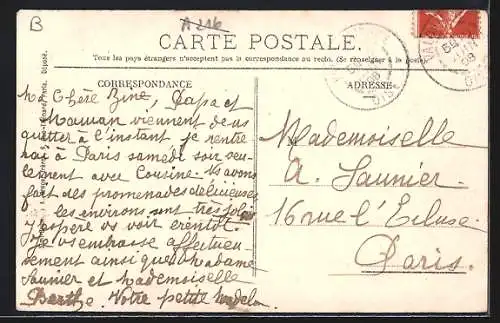 B
A 216
CARTE POSTALE.
Tous les pays étrangers n'acceptent pas la correspondance au recto. (Se renseigner à la poste)
CORRESPONDANCE
ADRESSE
Ma Chère Zine, Papa et
Maman viennent de us
quitter à l'instant je rentre
rai à Paris samedi soir seu-
lement avec Cousine. Ns avons
fait des promenades délicieuses
les environs sont très jolis
J'espère vs voir bientôt.
Je vs embrasse affectueu
sement ainsi que Madame
Saunier et Mademoiselle
Berthe. Votre petite
Mademoiselle
A. Saunier.
16 rue l'Ecluse.
Paris.